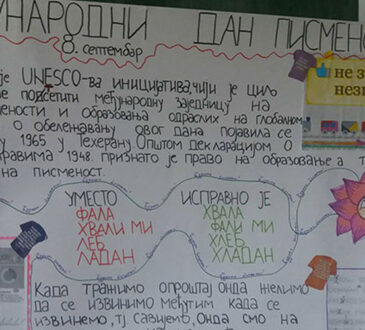 УНАРОДНИ ДАН ПИСМЕНО
8. септембар
не з
незн
је UNESCO-ва иницијатива, чији је циљ
не подсетити међународну заједницу на
ености и образовања одраслих на глобалном
о обележавању овог дана појавила се
у 1965 у Техерану. Општом декларацијом о
правима 1948. признато је право на образовање а т
на писменост.
УМЕСТО
ФАЛА
ХВАЛИ МИ
ЛЕБ
ЛАДАН
ИСПРАВНО ЈЕ
ХВАЛА
ФАЛИ МИ
ХЛЕБ
ХЛАДАН
Када тражимо опроштај онда желимо
да се извинимо међутим када се
извинемо, тј. савијемо. Онда смо на